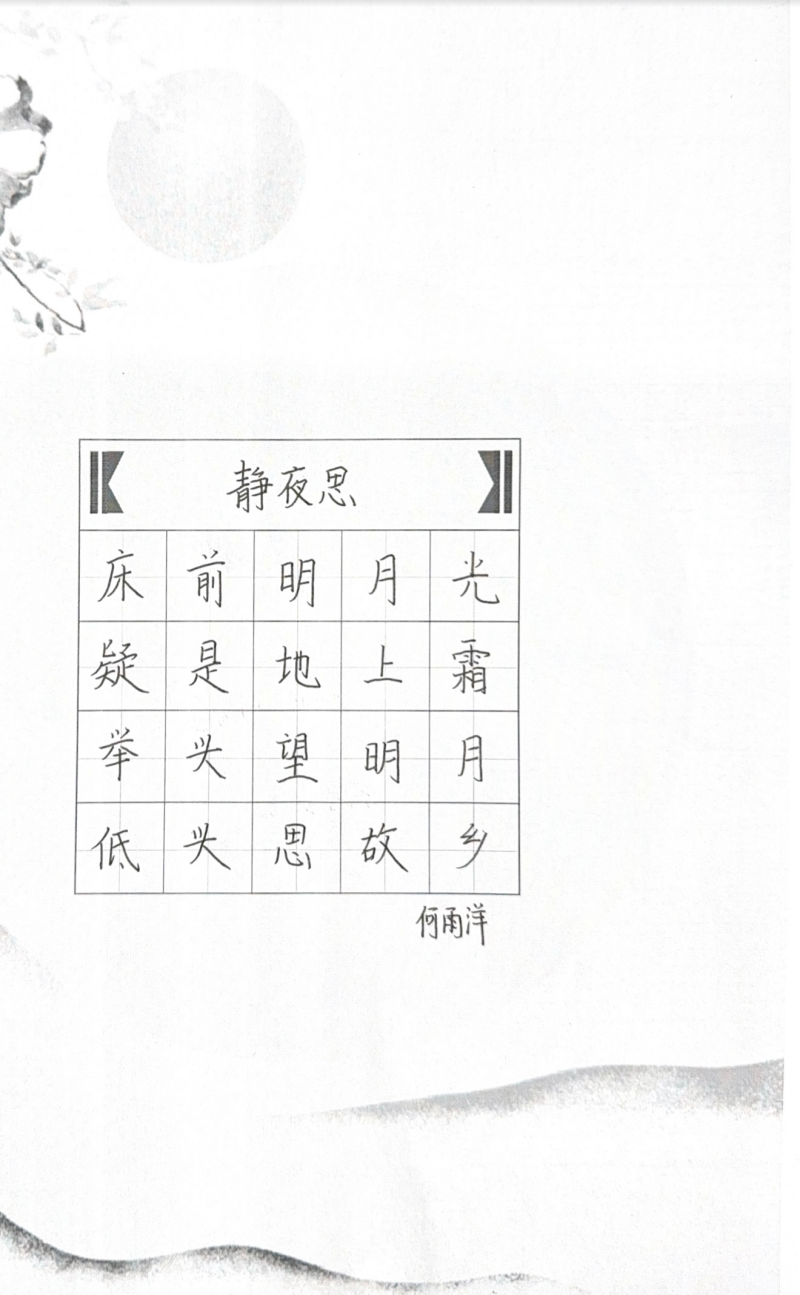 静夜思
床前明月光
疑是地上霜
举头望明月
低头思故乡
何雨洋